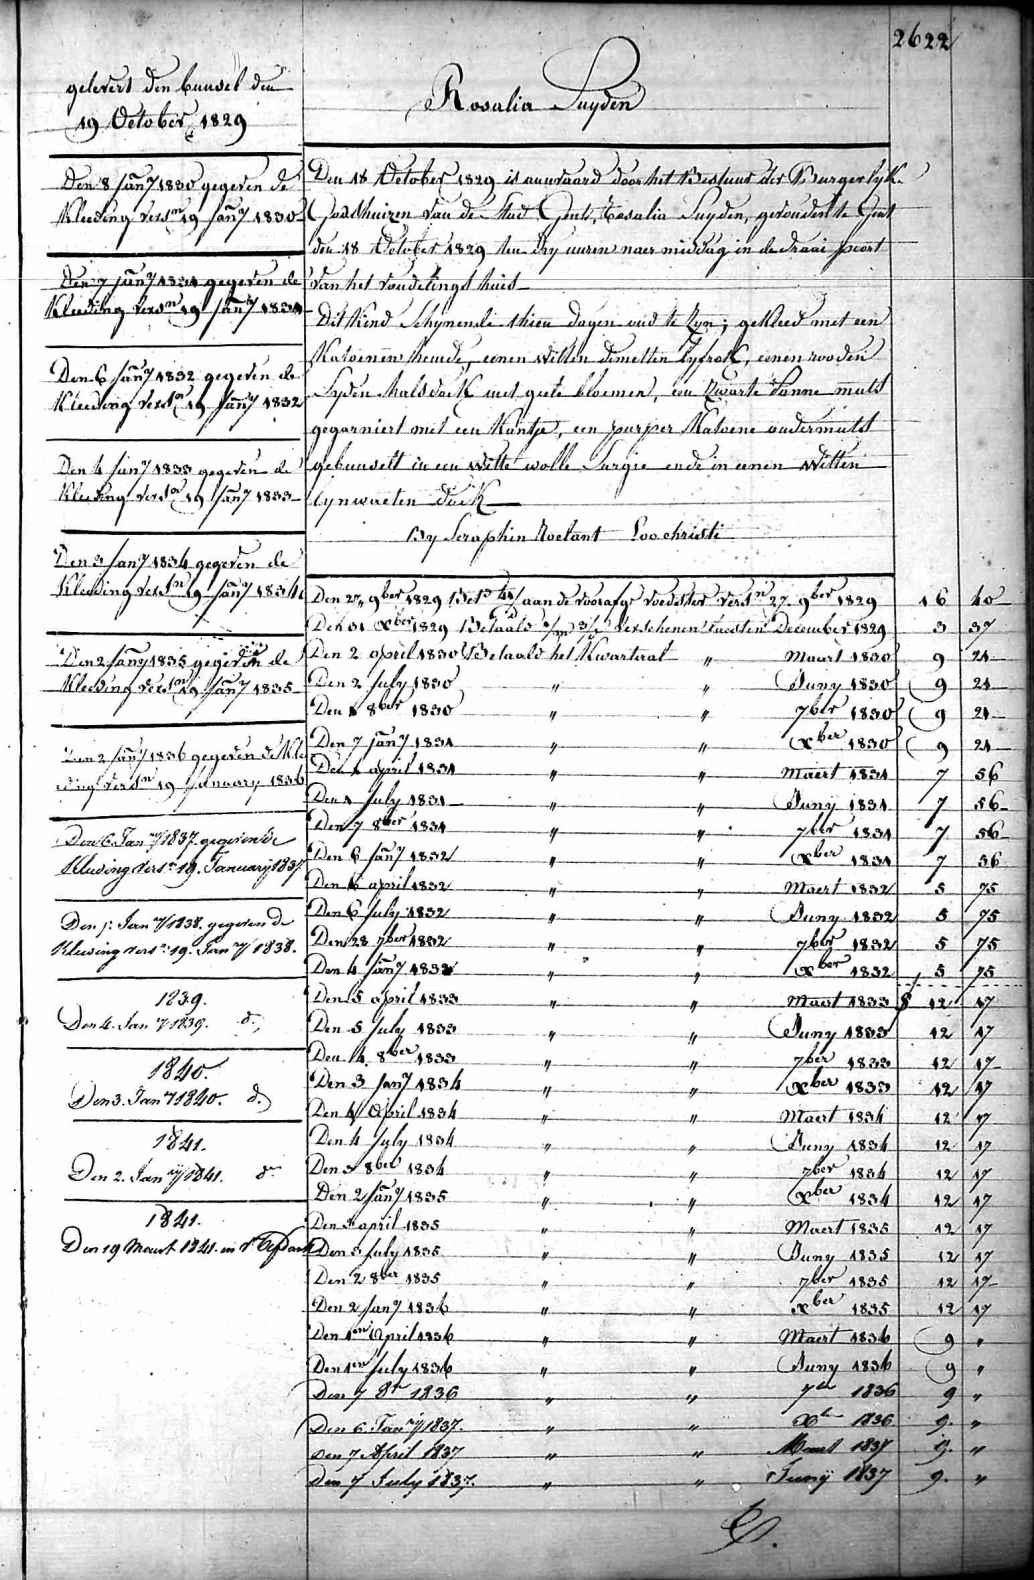 2622
gelevert den bunsel den
19 October 1829
Rosalia Suyden
Den 8 Janry 1830 gegeven de
Kleeding versn 19 Janry 1830
Den 7 Janry 1831 gegeven de
Kleeding versn 19 Janry 1831
Den 6 Janry 1832 gegeven de
Kleeding versn 19 Janry 1832
Den 4 Janry 1833 gegeven de
Kleeding versn 19 Janry 1833
Den 3 Janry 1834 gegeven de
Kleeding versn 19 Janry 1834
Den 2 Janry 1835 gegeven de
Kleeding versn 19 Janry 1835
Den 2 Janry 1836 gegeven de Kle
eding versn 19 January 1836
Den 6 Janry 1837 gegeven de
Kleeding versn 19. January 1837
Den 5 Janry 1838. gegeven de
Kleeding versn 19. Janry 1838.
1839.
Den 4. Janry 1839. do
1840.
Den 3. Janry 1840. do
1841.
Den 2. Janry 1841. do
1841.
Den 19 Maert 1841
Den 18 October 1829 is aenvaard door het Bestuur der Burgerlyke
Godshuizen van de Stad Gent, Rosalia Suyden, gevonden te Gent
den 18 October 1829 ten dry uuren naer middag in de draai poort
van het vondelings huis
Dit Kind schynende thien dagen oud te zyn; gekleed met een
Katoenen hemde, eenen witten demetten lyfrok, eenen rooden
Syden halsdoek met geele bloemen, een zwarte Panne muts
gegarniert met een Kantje, een purper Katoene ondermuts
gebunselt in een witte wolle Sargie ende in eenen witten
lynwaeten doek
By Seraphin Roelant Loochristi
Den 27 9ber 1829 aan de voorafge voedster versn 27 9ber 1829 16 40
Den 31 Xber 1829 Betaald verschenen laesten December 1829 3 37
Den 2 april 1830 Betaald het Kwartaal " Maart 1830 9 21
Den 2 July 1830 " " Juny 1830 9 21
Den 1 8ber 1830 " " 7ber 1830 9 21
Den 7 Janry 1831 " " Xber 1830 9 21
Den 1 april 1831 " " Maert 1831 7 56
Den 1 July 1831 " " Juny 1831 7 56
Den 7 8ber 1831 " " 7ber 1831 7 56
Den 6 Janry 1832 " " Xber 1831 7 56
Den 6 april 1832 " " Maert 1832 5 75
Den 6 July 1832 " " Juny 1832 5 75
Den 28 7ber 1832 " " 7ber 1832 5 75
Den 4 Janry 1833 " " Xber 1832 5 75
Den 5 april 1833 " " Maert 1833 12 17
Den 5 July 1833 " " Juny 1833 12 17
Den 4 8ber 1833 " " 7ber 1833 12 17
Den 3 Janry 1834 " " Xber 1833 12 17
Den 4 April 1834 " " Maert 1834 12 17
Den 4 July 1834 " " Juny 1834 12 17
Den 3 8ber 1834 " " 7ber 1834 12 17
Den 2 Janry 1835 " " Xber 1834 12 17
Den 3 april 1835 " " Maert 1835 12 17
Den 3 July 1835 " " Juny 1835 12 17
Den 2 8ber 1835 " " 7ber 1835 12 17
Den 2 Janry 1836 " " Xber 1835 12 17
Den 1en April 1836 " " Maert 1836 9 "
Den 1en July 1836 " " Juny 1836 9 "
Den 7 8r 1836 " " 7br 1836 9 "
Den 6 Janry 1837. " " Xbr 1836 9. "
Den 7 April 1837 " " Maert 1837 9. "
Den 7 July 1837. " " Juny 1837 9. "